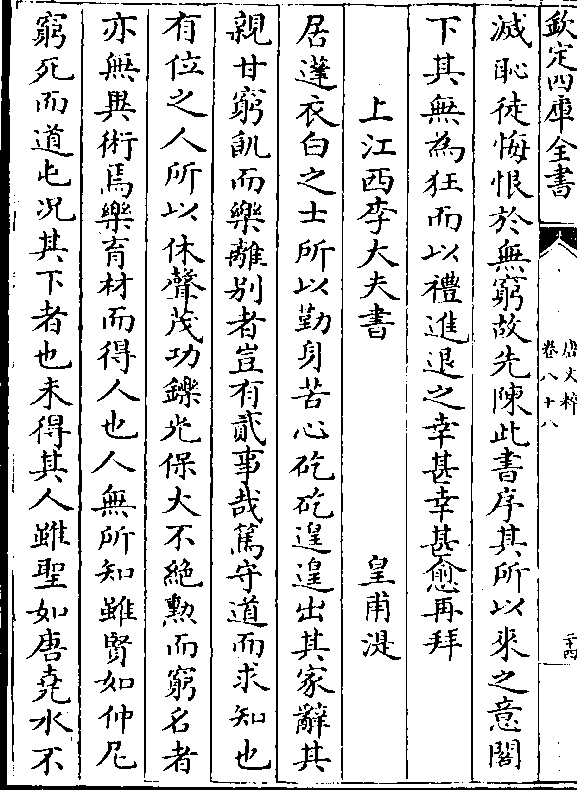 欽定四庫全書
唐文粹
卷八十八
二十四
滅恥徒悔恨於無窮故先陳此書序其所以來之意閣
下其無為狂而以禮進退之幸甚幸甚愈再拜
上江西李大夫書　皇甫湜
居蓬衣白之士所以勤身苦心矻矻遑遑出其家辭其
親甘窮飢而樂離別者豈有貳事哉篤守道而求知也
有位之人所以休聲茂功鑠光保大不絕勲而窮名者
亦無異術焉樂育材而得人也人無所知雖賢如仲尼
窮死而道屯况其下者也未得其人雖聖如唐堯水不